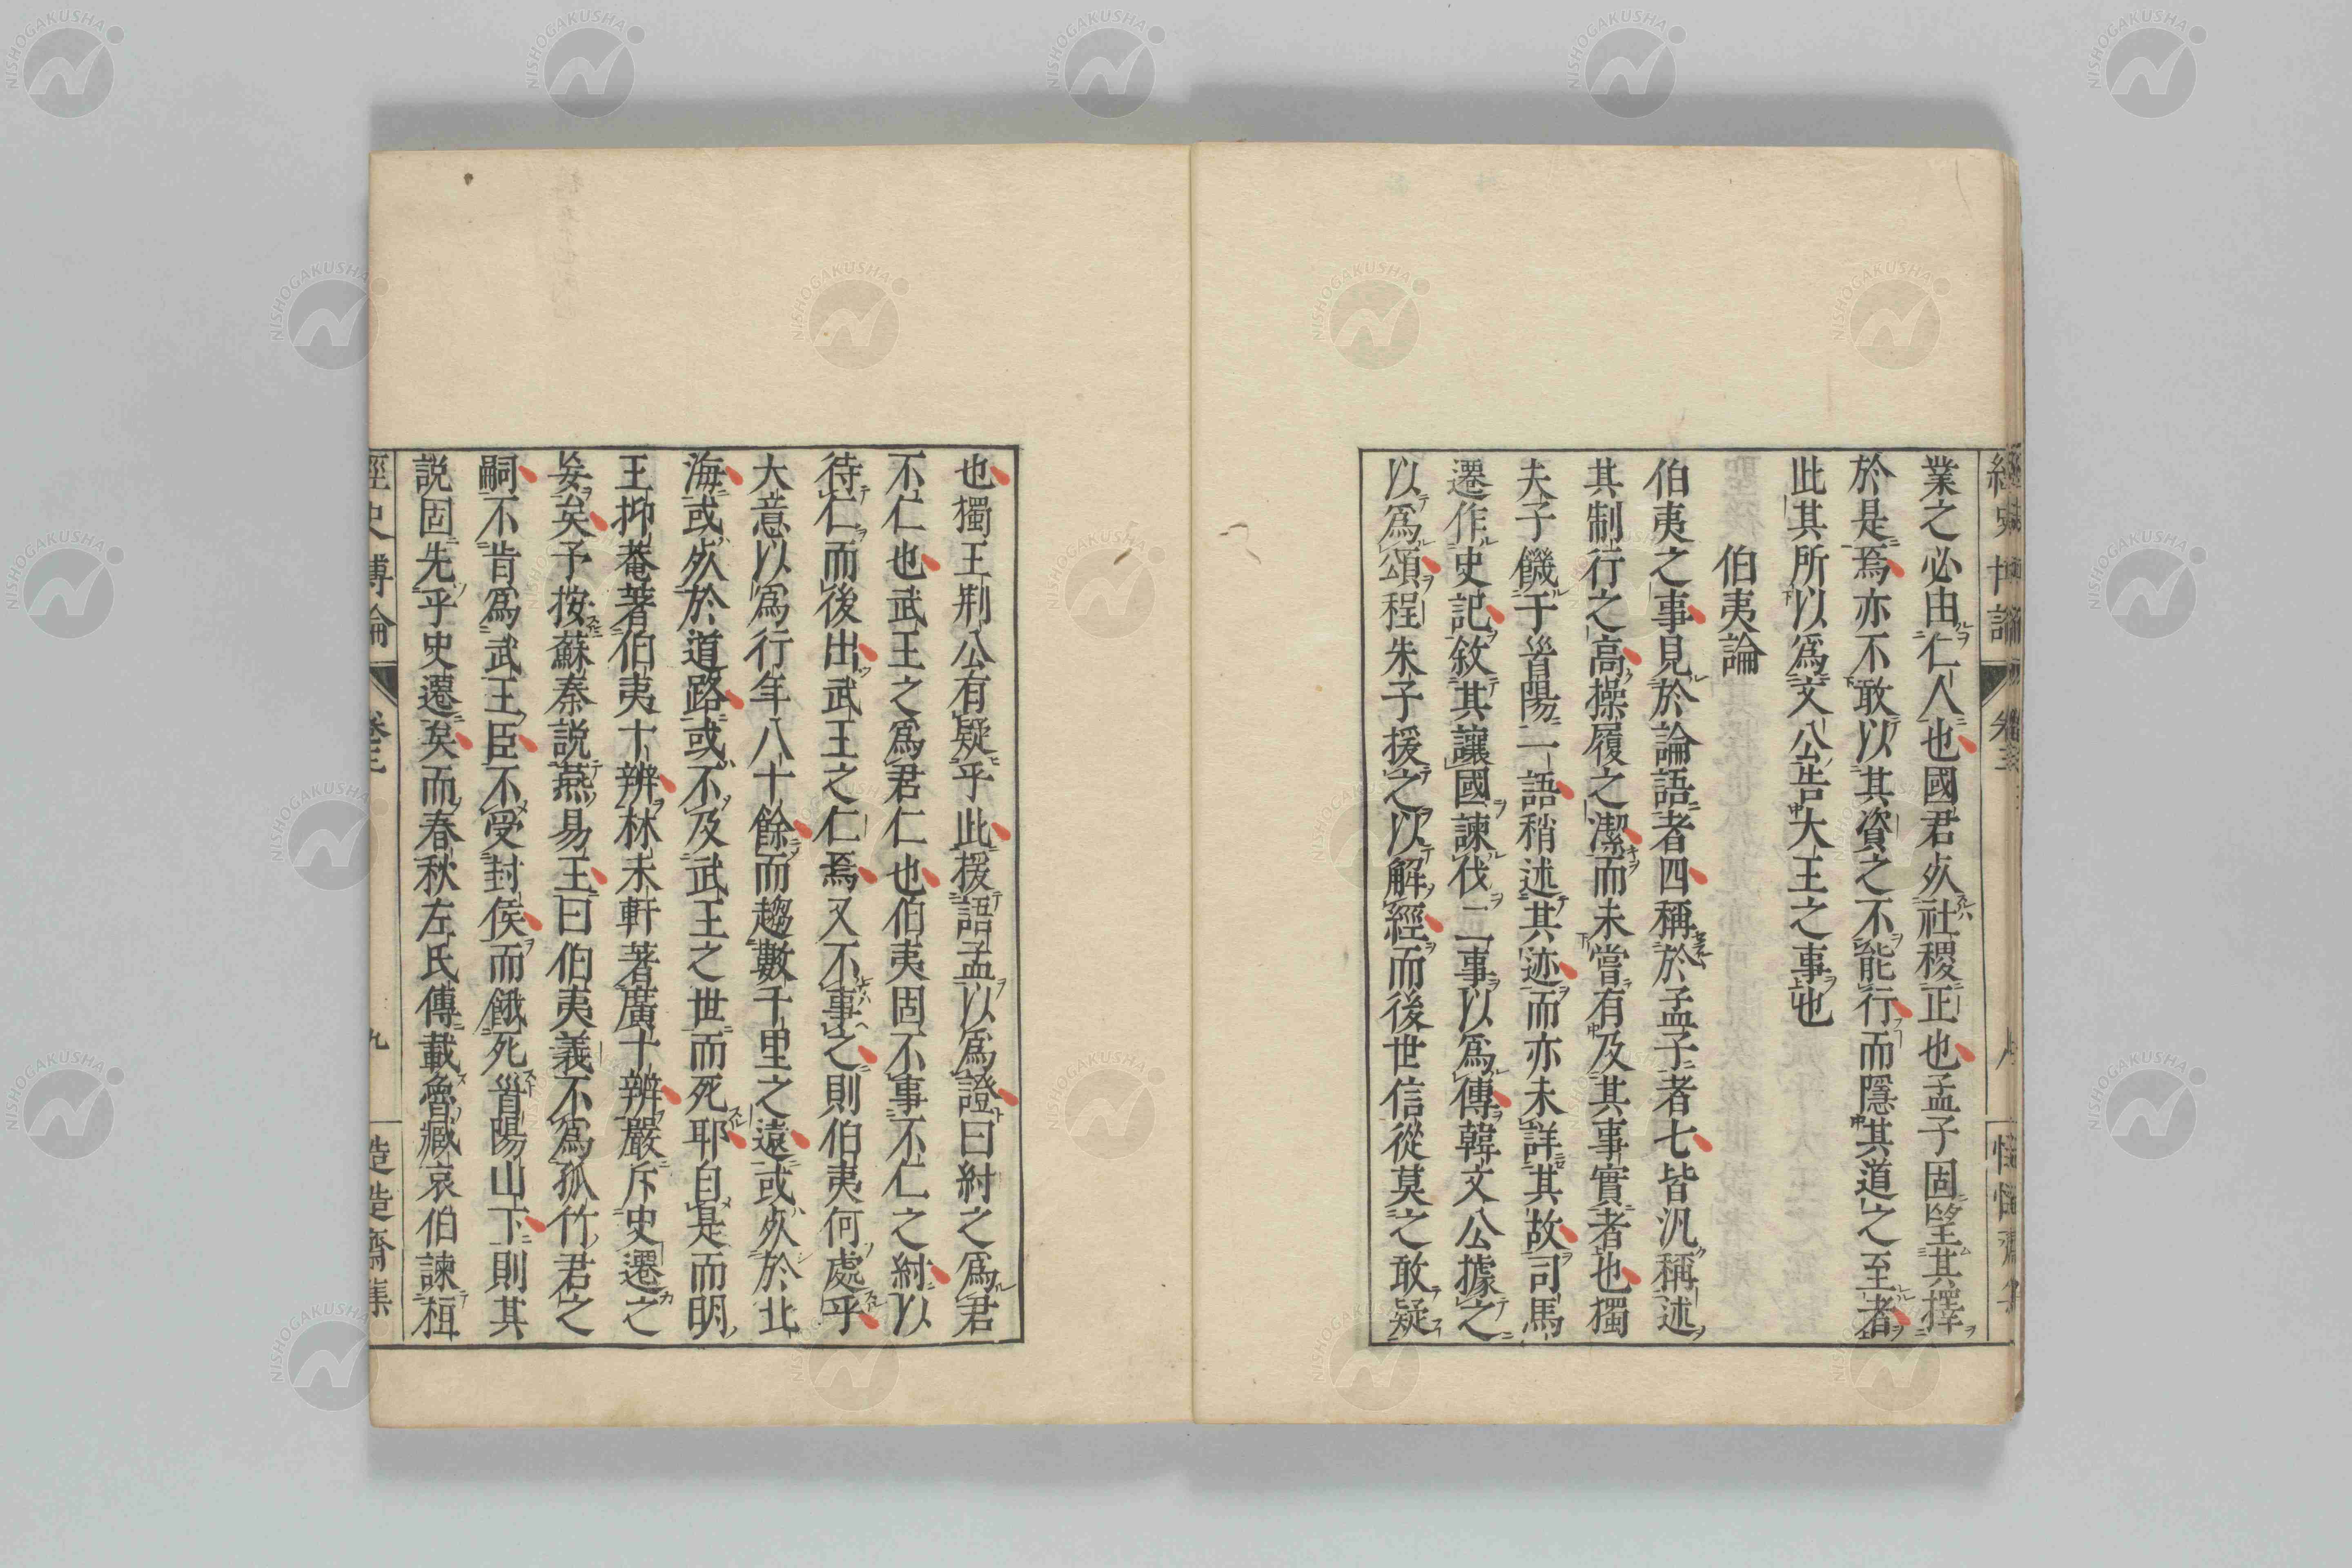 業之必由仁人也國君死社稷正也孟子固望其擇
於是焉亦不敢以其資之不能行而隱其道之至者
此其所以爲文公告大王之事也
伯夷論
伯夷之事見於論語者四稱於孟子者七皆汎稱述
其制行之高操履之潔而未嘗有及其事實者也獨
夫子餓于首陽一語稍述其迹而亦未詳其故司馬
遷作史記敘其讓國諫伐二事以爲傳韓文公據之
以爲頌程朱子援之以解經而後世信從莫之敢疑
也獨王荆公有疑乎此援語孟以爲證曰紂之爲君
不仁也武王之爲君仁也伯夷固不事不仁之紂以
待仁而後出武王之仁焉又不事之則伯夷何處乎
大意以爲行年八十餘而趨數千里之遠或死於北
海或死於道路或不及武王之世而死耶自是而明
王抑菴著伯夷十辨林未軒著廣十辨嚴斥史遷之
妄矣予按蘇秦説燕易王曰伯夷義不爲孤竹君之
嗣不肯爲武王臣不受封侯而餓死首陽山下則其
説固先乎史遷矣而春秋左氏傳載魯臧哀伯諫桓
經史博論
卷三
九
造造齋集